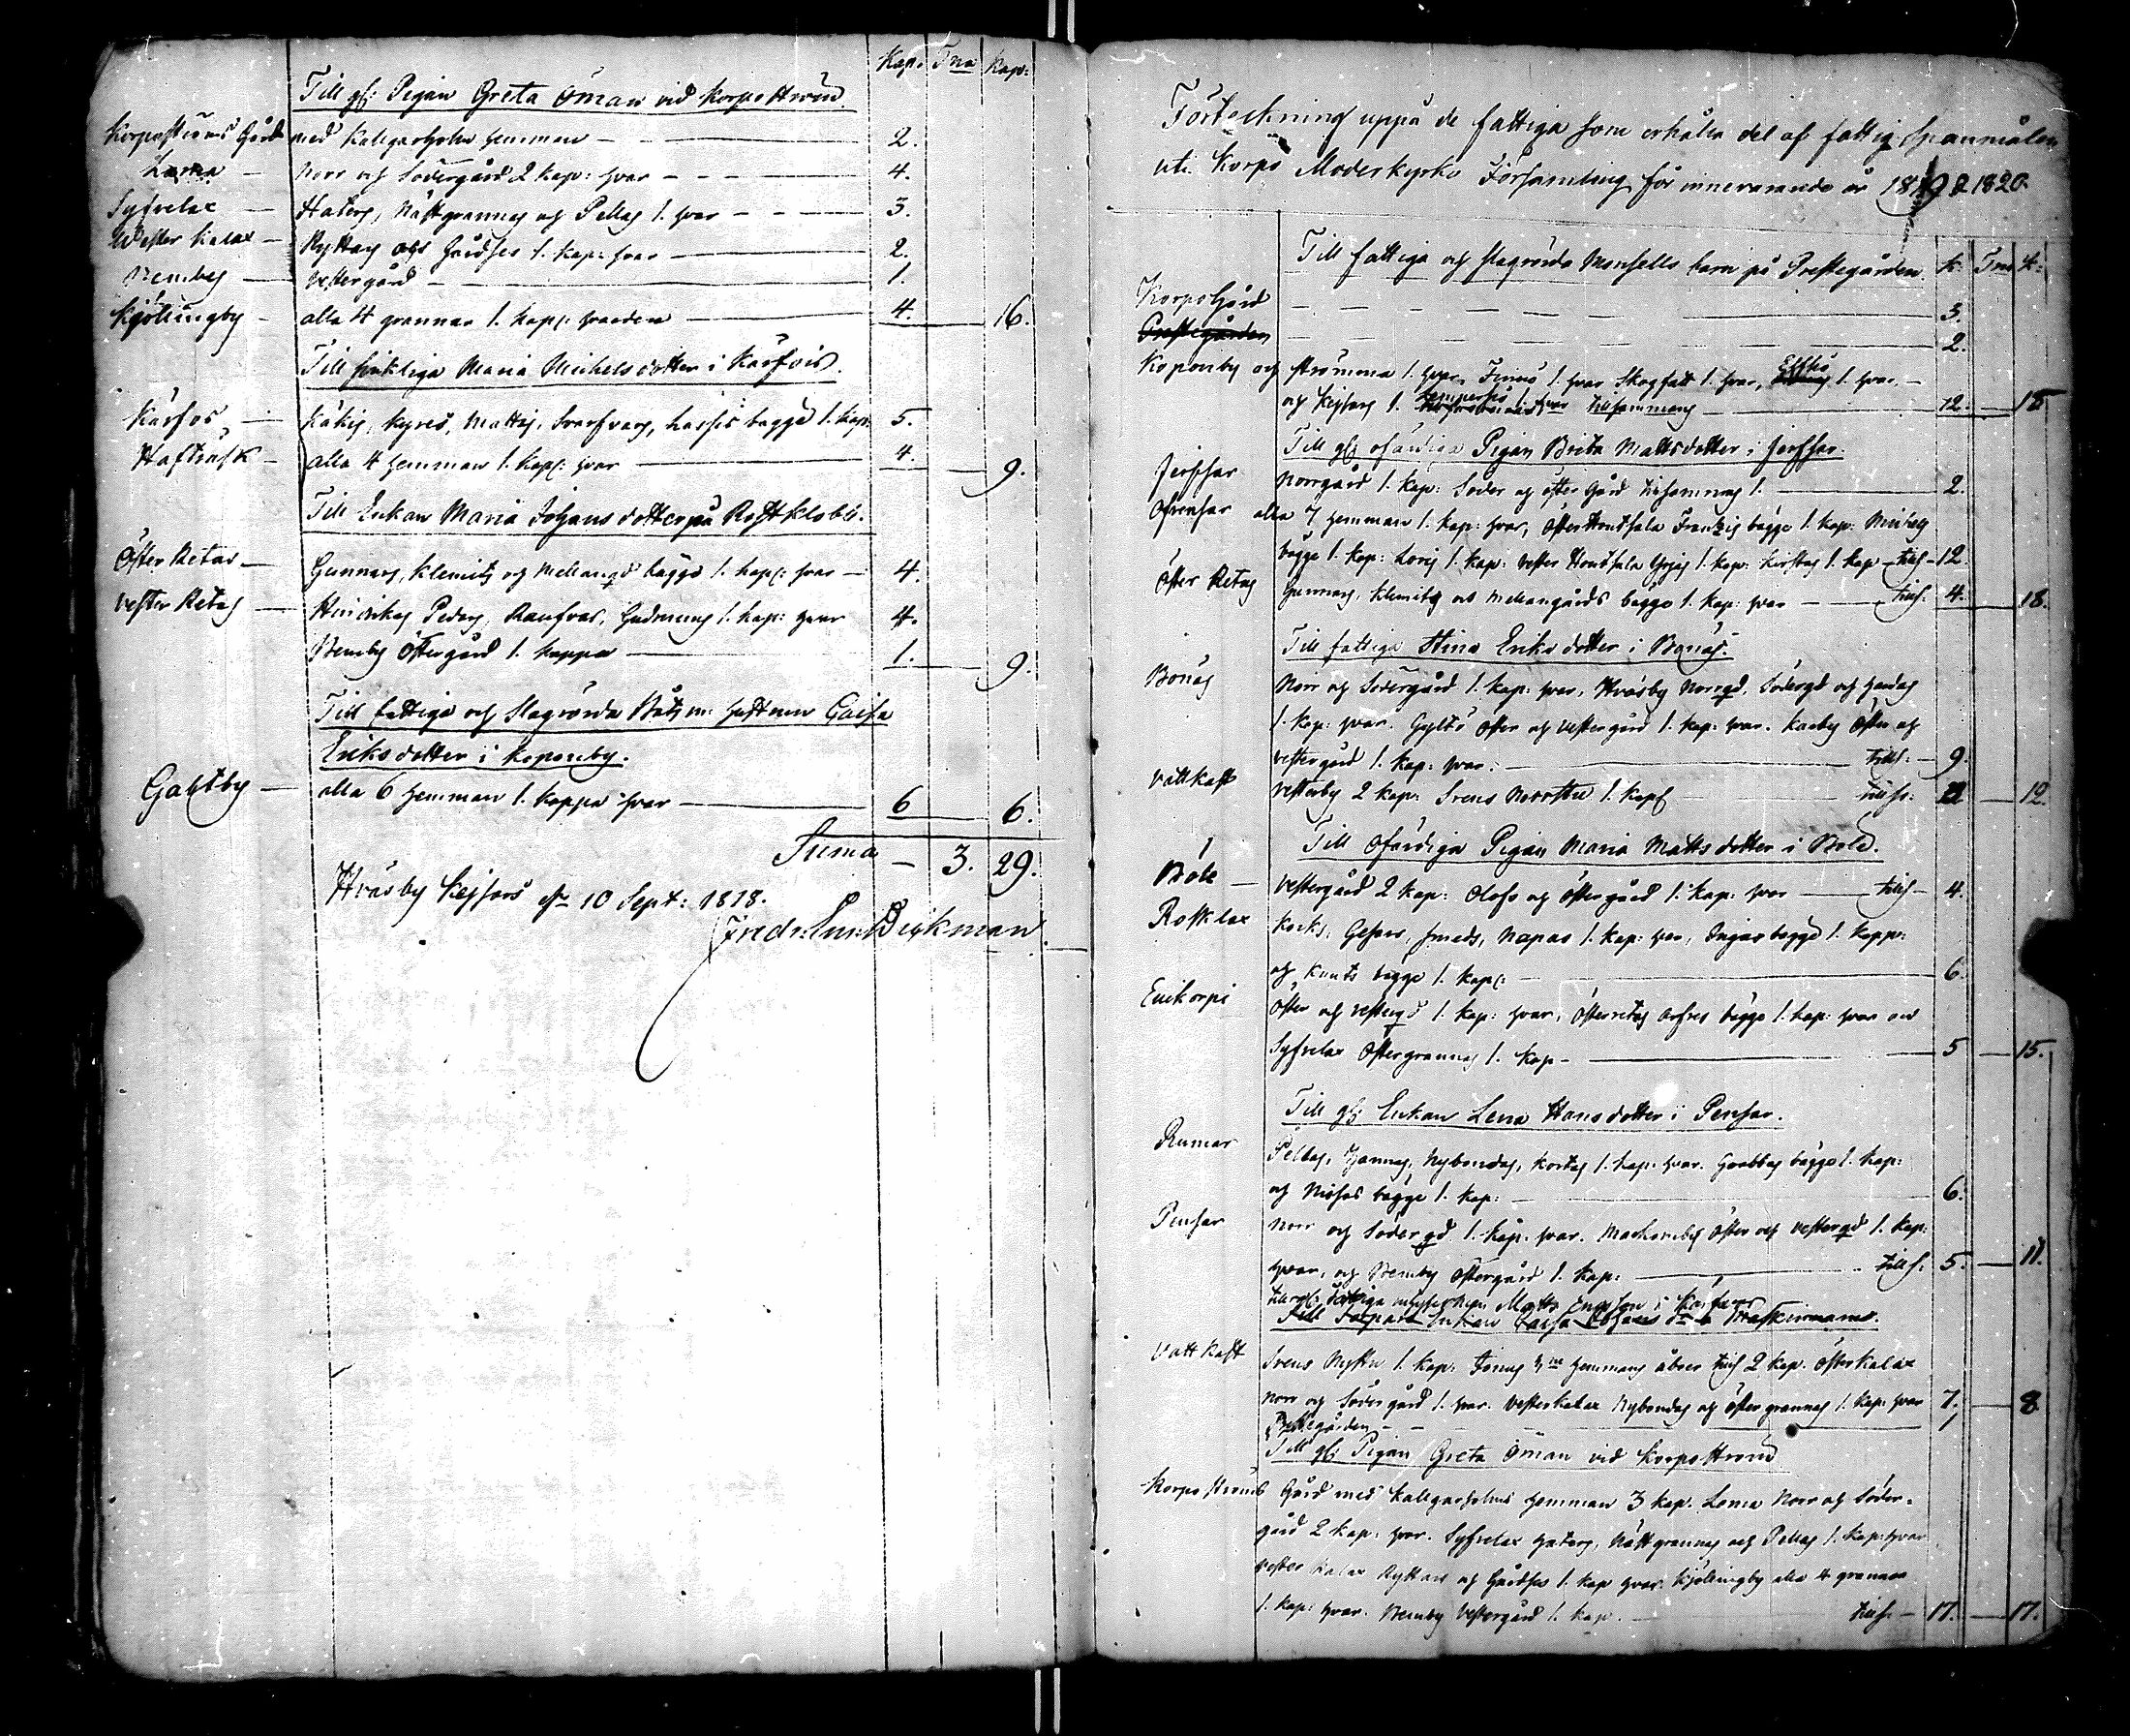 Kap: Tna Kap:
Till gl: Pigan Greta Öman vid Korpoström.
Korpoströms Gård med Kalegarholm hemman — 2.
Lama — Norr og Södergård 2 kap: hvar — 4.
Syfvelax — Haters, Nättgrannas og Pellas 1. hvar — 3.
Wester Kalax — Ryttars och Gårdses 1. kap: hvar — 2.
Bemby — Vestergård — 1.
Kjöllingby — alla 4 grannar 1. kapp: hvardera — 4. 16.
Till sjukliga Maria Michelsdotter i Kårfois.
Kårfos — Käkis, Kyres, Mattis, Svarfvars, Lassis bägge 1. kap: 5.
Haftrask — alla 4 hemman 1. kapp: hvar — 4. 9.
Till Enkan Maria Johansdotter på Rostklobb.
Öster Retas — Gunnars, Klemits og Mellangd bägge 1. kapp: hvar — 4.
Vester Retas — Hindrikas Peders, Ranfvas, Gudmuns 1. kap: hvar 4.
Bemby Östergård 1. kappa — 1. 9.
Till fattiga och Slagrörda Båtsm: hustrun Caisa
Eriksdotter i Koponby.
Galtby — alla 6 hemman 1. kappa hvar — 6 6.
Suma — 3. 29.
Hväsby Kejsars den 10 Sept: 1818.
Fredr: Em: Dickman.
Förteckning uppå de fattiga som erhålla del af fattig Spanmålen
uti Korpo Moderkyrko Församling för innevarande år 1819 & 1820.
Till fattiga och slagrörda Monsells barn på Prestegården. K: Tna K:
Korpogård — 3.
Prestegården — 2.
Koponby och Strömma 1. hvar, Finnö 1. hvar Skogfall 1. hvar, 1. hvar —
og Kejsars 1. hvar tillsammans — 12. 18
Till gl: ofärdiga Pigan Brita Mattsdotter i Jerssar.
Jerssar Norrgård 1. kap: Söder og öster Gård tillsammans 1. — 2.
Ofvensar alla 7 hemman 1. kap: hvar, Öster Hombsala Frantsis bägge 1. kap:
bägge 1. kap: 1. kap: Vester Hombsala 1. kap: 1. kap — tills — 12.
Öster Retas Gunnars, Klemits og Mellangårds bägge 1. kap: hvar — tills: 4. 18.
Till fattiga Stina Eriksdotter i Bonäs.
Bonäs Norr og Södergård 1. kap: hvar, Hväsby Norrgd, Södergd och
1. kap: hvar. Gyltö Öster og Vestergård 1. kap: hvar. Karby Öster og
Vestergård 1. kap: hvar. — tills: — 9.
Vattkast Vesterby 2 kap: Svens Norrstu 1. kap: tills: 12.
Till Ofärdiga Pigan Maria Mattsdotter i Böle.
Böle — Vestergård 2 kap: Olofs og Östergård 1. kap: hvar — tills — 4.
Rosklax Korks, Gesars, Smeds, Napas 1. kap: hvar, Ingas bägge 1. kapp:
og Knuts bägge 1. kap: — 6.
Enikorpi Öster og Vestergd 1. kap: hvar, Österretas bägge 1. kap: hvar
Syfvelax Östergrannas 1. kap — 5 15.
Till gl: Enkan Lena Hansdotter i Pensar.
Rumar Pellas, Hannas, Nybondas, Kortes 1. kap: hvar. Grabbas bägge 1. kap:
og Nissas bägge 1. kap: — 6.
Pensar Norr og Södergd 1. kap: hvar. Markomby Öster och Vestergd 1. kap:
hvar, og Bemby Östergård 1. kap: — tills: 5. 11.
Matts Ersson i
Till Enkan Caisa
Vattkast Svens Nystu 1. kap: hemmans åboer tills 2 kap. Österkalax
Norr og Södergård 1. hvar. Vesterkalax Nybondas og Östergrannas 1. kap: hvar 7. 8.
Prestegården — 1
Till gl: Pigan Greta Öman vid Korpoström
Korpo Ströms Gård med Kalegarholms hemman 3 kap. Lama Norr og Söder-
gård 2 kap: hvar. Syfvelax Haters, Nättgrannas och Pellas 1. kap: hvar
Vester Kalax Ryttars og Gårdses 1. kap hvar. Kjöllingby alla 4 grannar
1. kap: hvar. Bemby Vestergård 1. kap. — tills — 17. 17.